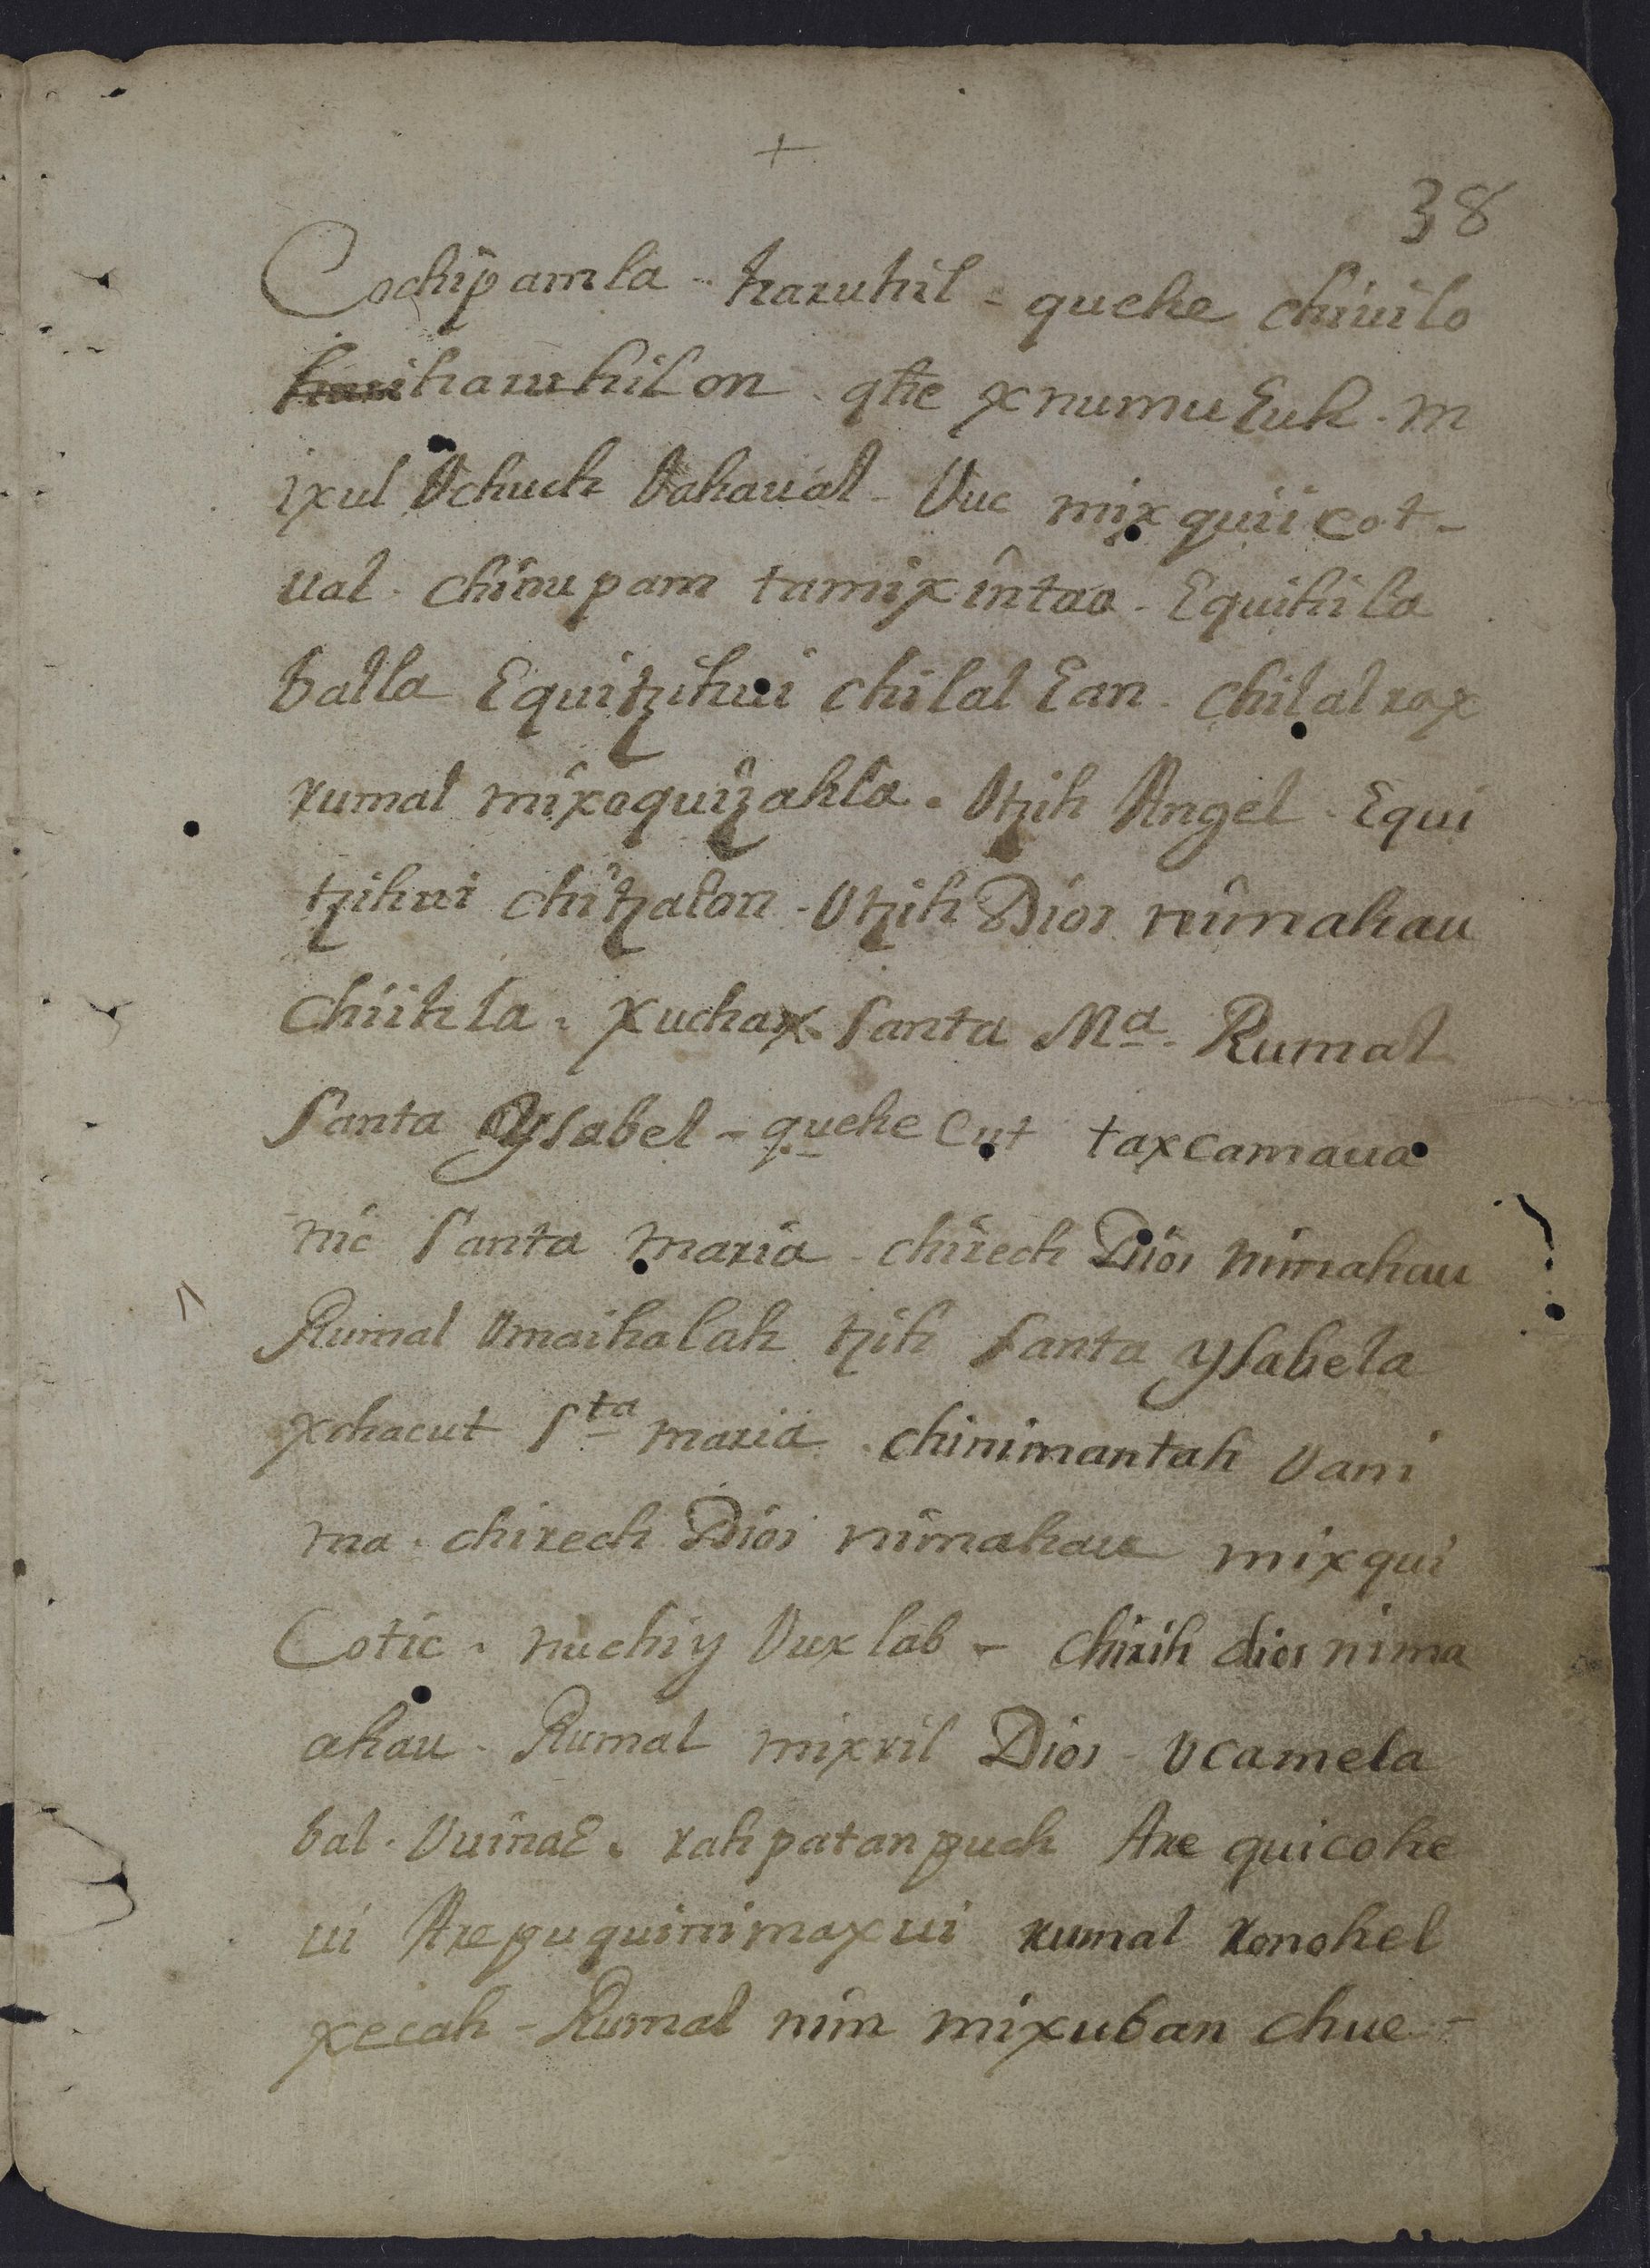 +
38
Cochipamla - haruhil - quehe chiuilo
haruhilon - qhe xnumuɛuh - m
ixul Vchuch Vahaual - Vuc mixquiicot -
ual - chinupam tamixintao - ɛquihila
balla ɛquitzihui chilalɛan - chilalrox
rumal mixoquizahla . Vtzih Angel - ɛqui
tzihui chitzaɛon - Vtzih Dios nimahau
chiihla - xuchax Santa Mª. Rumal
Santa Ysabel - quehe cut taxcamaua
nic Santa maria - chirech Dios nimahau
Rumal Vmaihalah tzih Santa ysabela
xchacut Sta maria chinimantah Vani
ma - chirech Dios nimahau mixqui
Cotic - nuchiy Vuxlab - chirih dios nima
ahau - Rumal mixril Dios - Vcamela
bal - Vuinaɛ . rahpatanpuch Are quicohe
ui Arepuquinimaxui rumal Ronohel
xecah - Rumal nim mixuban chue -